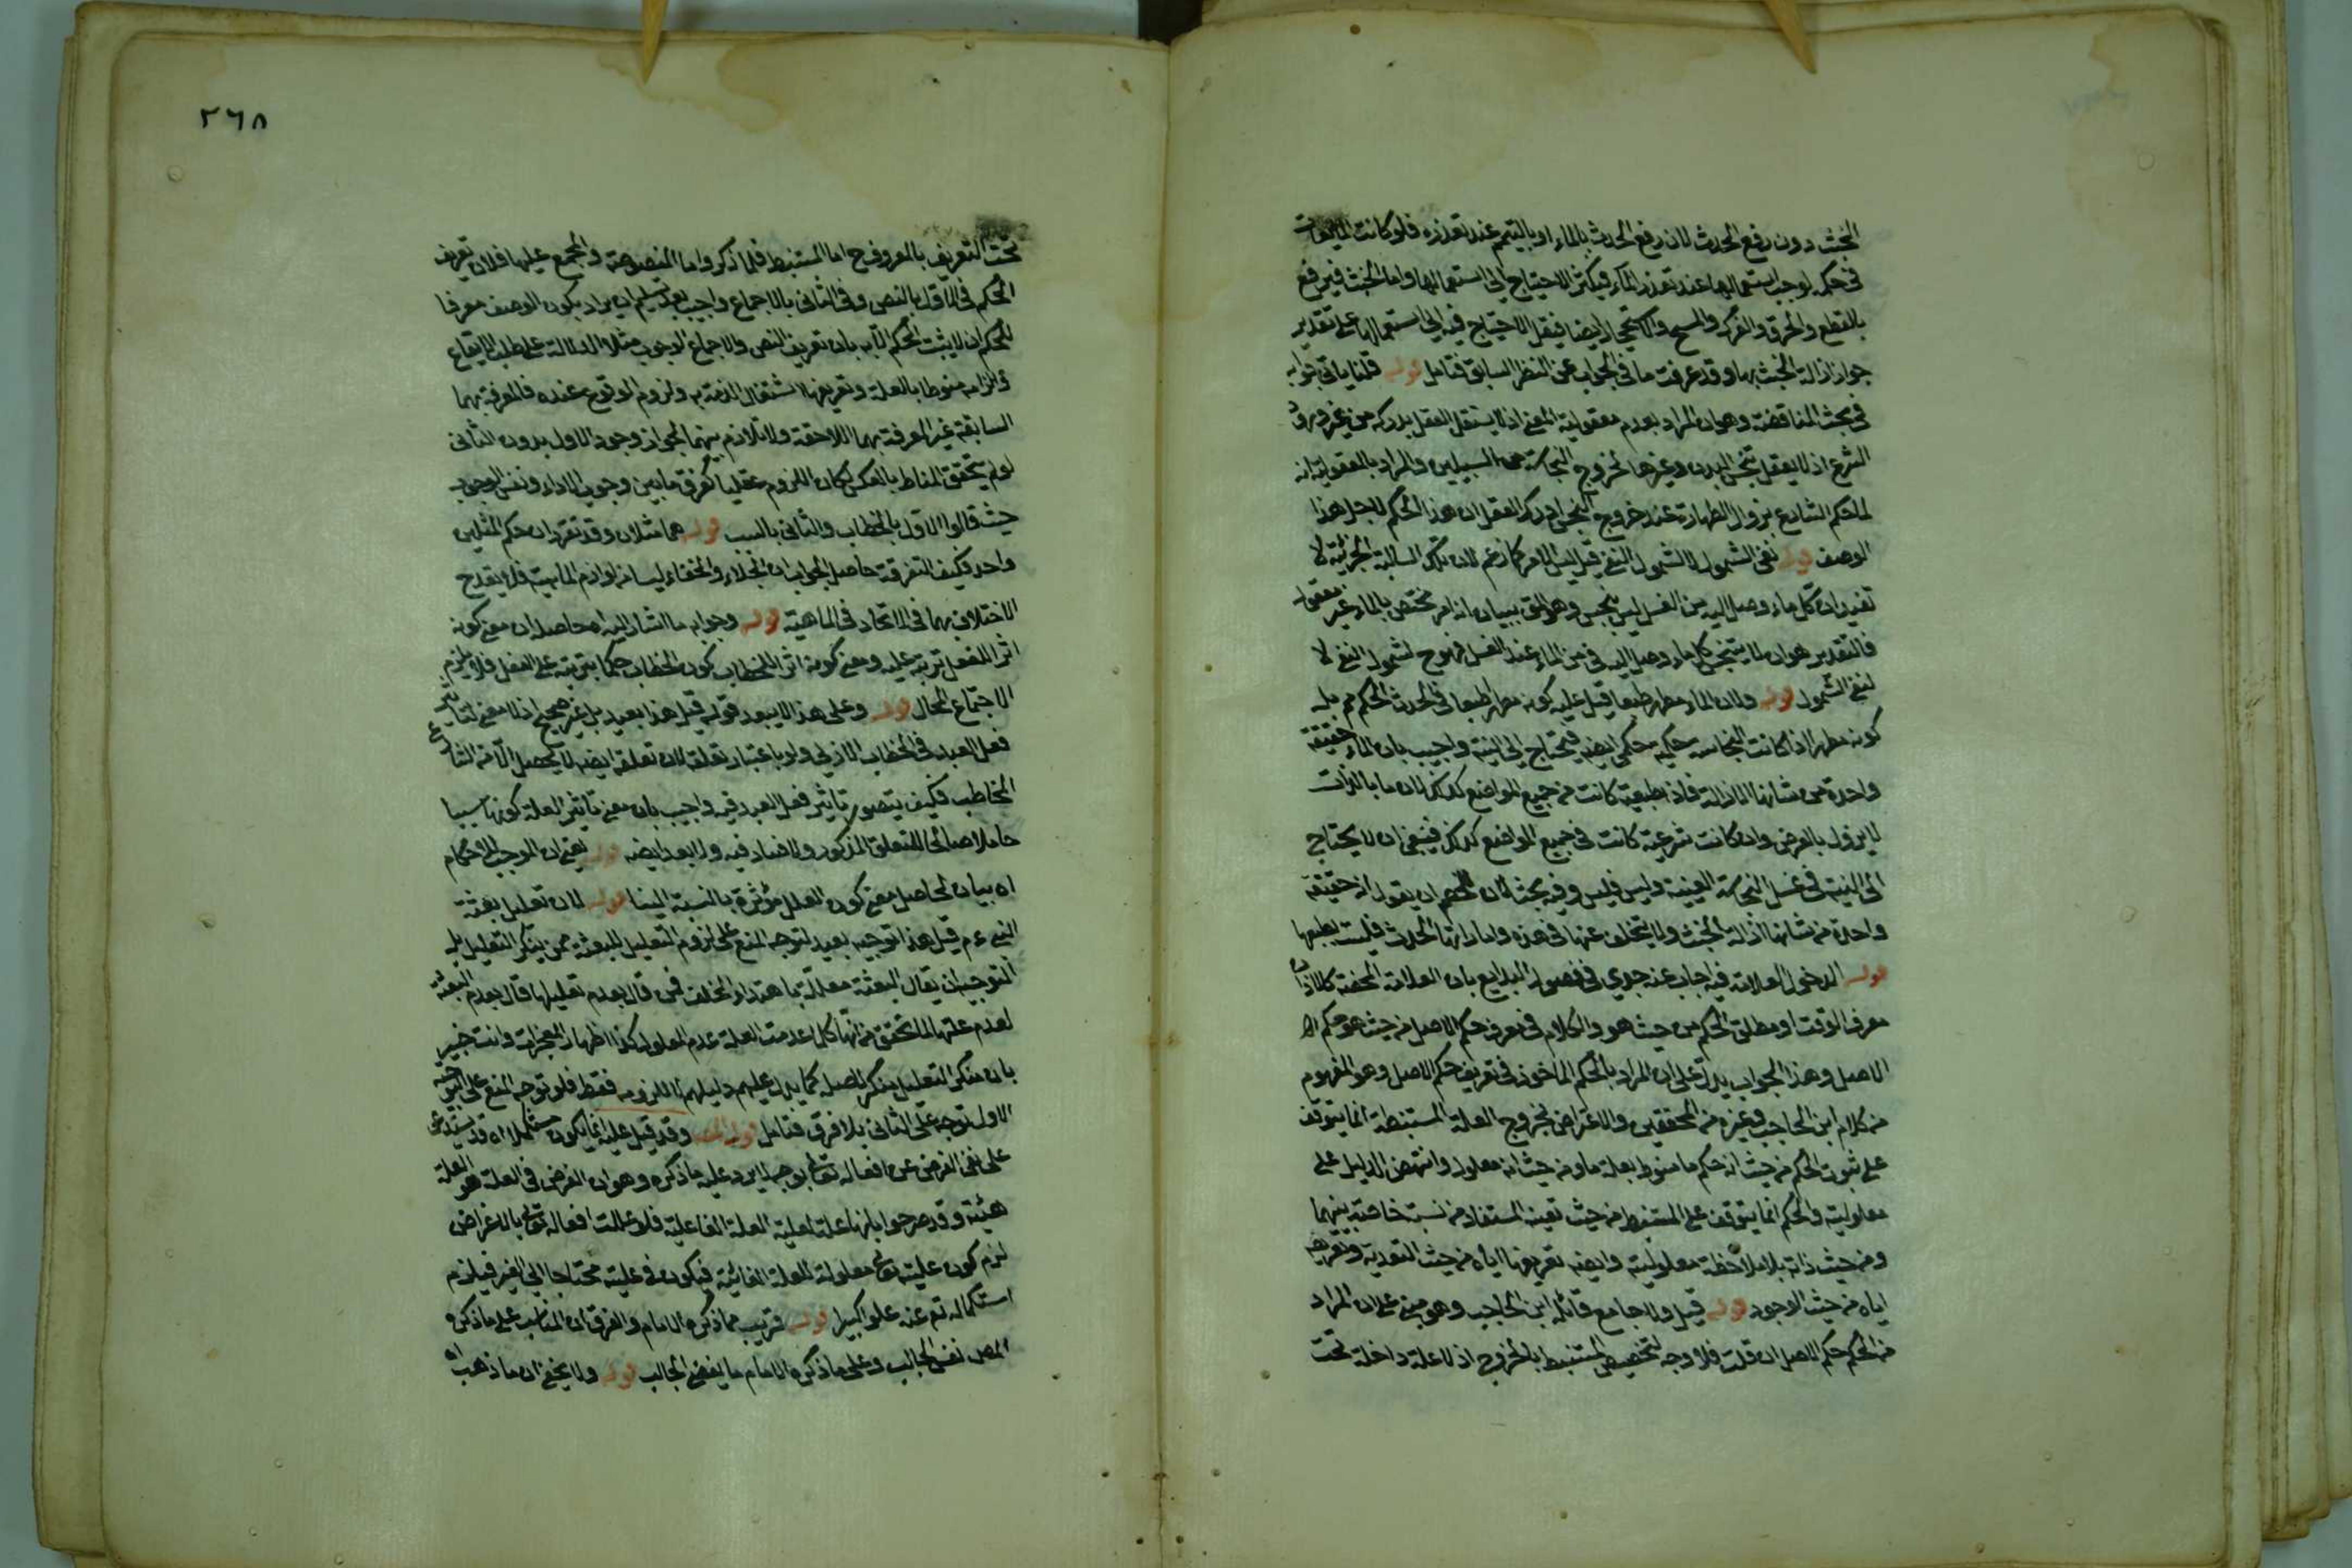 الخبث دون رفع الحدث لان رفع الحدث بالماء او بالتيمم عند تعذره فلو كانت المايعات
في حكمه لوجب استعمالها عند تعذر الماء فيكثر الاحتياج الى استعمالها واما الخبث فيرفع
بالقطع والحرق والفرك والمسح والاستنجاء ايضا فيقل الاحتياج فيه الى استعمالها على تقدير
جواز ازالة الخبث بها وقد عرفت ما في الجواب عن النظر السابق فتامل قوله قلنا ياتي جوابه
في بحث المناقضة وهو ان المراد بعدم معقولية المعنى انه لا يستقل العقل بدركه من غير ورود
الشرع اذ لا يعقل تنجس البدن وغيرها بخروج النجاسة من السبيلين والمراد بالمعقولية انه
لما حكم الشارع بزوال الطهارة عند خروج النجس ادرك العقل ان هذا الحكم لاجل هذا
الوصف قوله نفى الشمول لا لشمول النفي قيل ليس الامر كما زعم لان تلك السالبة الجزئية لا
تفيد ان كل ماء وصل اليه من الغسل ليس بنجس وهو بيان انه امر مختص بالماء غير معقول
فالتقدير هو ان لا يتنجس كل ماء وصل اليه في من الماء عند الغسل فهو ح لشمول النفي لا
لنفي الشمول قوله ولان الماء مطهر طبعا قيل عليه كونه مطهرا طبعا في الحدث الحكمي م بل
كونه مطهرا اذا كانت النجاسة حكمية حكمي ايضه فيحتاج الى النية واجيب بان الماء حقيقة
واحدة من شانها الازالة فاذا طبعية كانت في جميع المواضع كذلك لان ما بالذات
لا يزول بالعرض وان كانت شرعية كانت في جميع المواضع كذلك فينبغي ان لا يحتاج
الى النية في غسل النجاسة العينية وليس فليس وفيه بحث لان للخصم ان يقول انه حقيقة
واحدة من شانها ازالة الخبث ولا يتخلف عنها في هذه واما ازالتها الحدث فليست بطبعها
قوله لدخول العلامة فيه اجاب عنه جدي في فصول البدايع بان العلامة المحضة كالاذان
معرف الوقت او مطلق الحكم من حيث هو والكلام في معرف حكم الاصل من حيث هو حكم الا
الاصل وهذا الجواب يدل على ان المراد بالحكم الماخوذ في تعريف حكم الاصل وهو المفهوم
من كلام ابن الحاجب وغيره من المحققين والاعتراض بخروج العلة المستنبطة انما يتوقف
على ثبوت الحكم من حيث انه حكم ما منوط بعلة ما ومن حيث انه معلول وانتهض الدليل على
معلوليته والحكم انما يتوقف على المستنبط من حيث تعينه المستفاد من نسبة خاصة بينهما
ومن حيث ذاته بلا ملاحظة معلوليته وايضه تعريفها اياه من حيث التعدية وتعريفه
اياه من حيث الوجود قوله قيل ولا جامع قائله ابن الحاجب وهو مبني على ان المراد
من الحكم حكم الاصل ان قلت فلا وجه لتخصيص المستنبط بالخروج اذ لا علة داخلة تحت
تحت التعريف بالمعروف ح اما المستنبط فلما ذكر واما المنصوصة والمجمع عليها فلان تعريف
الحكم في الاول بالنص وفي الثاني بالاجماع واجيب بعد تسليم ان يراد بكون الوصف معرفا
للحكم ان لا يثبت الحكم الا به بان تعريف النص والاجماع الوجوب مثلا الدلالة على طلب الايقاع
والزامه منوطا بالعلة وتعريفها اشتغال الذمة به ولزوم الوقوع عنده فالمعرفة بهما
السابقة غير المعرفة بهما اللاحقة ولا تلازم بينهما لجواز وجود الاول بدون الثاني
لو لم يتحقق المناط بالعكس لكان اللزوم عقليا كفرق ما بين وجوب الاداء ونفس الوجوب
حيث قالوا الاول بالخطاب والثاني بالسبب قوله هما مثلان وقد تقرر ان حكم المثلين
واحد فكيف التفرقة حاصل الجواب ان الجلاء والخفاء ليسا من لوازم الماهية فلا يقدح
الاختلاف بهما في الاتحاد في الماهية قوله وجوابه ما اشار اليه محاصله ان معنى كونه
اثر الفعل ترتبه عليه ومعنى كونه اثر الخطاب كون الخطاب حكما بترتبه على الفعل فلا يلزم
الاجتماع المحال قوله وعلى هذا لا يبعد قوله قيل هذا بعيد بل غير صحيح اذ لا معنى لتاثير
فعل العبد في الخطاب الازلي ولو باعتبار تعلقه لان تعلقه ايضه لا يحصل الا من الشارع
المخاطب فكيف يتصور تاثير فعل العبد فيه واجيب بان معنى تاثير العلة كونها سببا
حاملا صالحا للتعلق المذكور ولا فساد فيه ولا بعد ايضه قوله يعني ان الموجب للاحكام
اه بيان لحاصل معنى كون العلل مؤثرة بالنسبة الينا قوله لان تعليل بعثة
النبي ءم قيل هذا توجيه بعيد لتوجه المنع على لزوم التعليل للبعثة ممن ينكر التعليل بل
التوجيه ان يقال البعثة معللة باهتداء الخلق فمن قال بعدم تعليلها قال بعدم البعثة
لعدم علتها لما تحقق من انها كلما عدمت العلة عدم المعلول كذا اظهار المعجزات وانت خبير
بان منكر التعليل منكر للاصل كما يدل عليهم دليلهم لا اللزومه فقط فلو توجه المنع على التوجيه
الاول توجه على الثاني بلا فرق فتامل قوله وقد قيل عليه انما يكون مستكملا اه قد يستدل
على نفي الغرض عن افعاله تعالى بوجه لا يرد عليه ما ذكره وهو ان الغرض في العلة هو العلة
هيئة وقد صرحوا بانها علة لعلية العلة الفاعلية فلو عللت افعاله تعالى بالاغراض
لزم كون عليته تعالى معلولة للعلة الغائية فيكون في عليته محتاجا الى الغير فيلزم
استكماله تم عنه علوا كبيرا قوله قريب مما ذكره الامام والفرق ان المناسب على ما ذكره
المص نفس الجالب وعلى ما ذكره الامام ما يفضي الجالب قوله ولا يخفى ان ما ذهب اه
٢٦٨